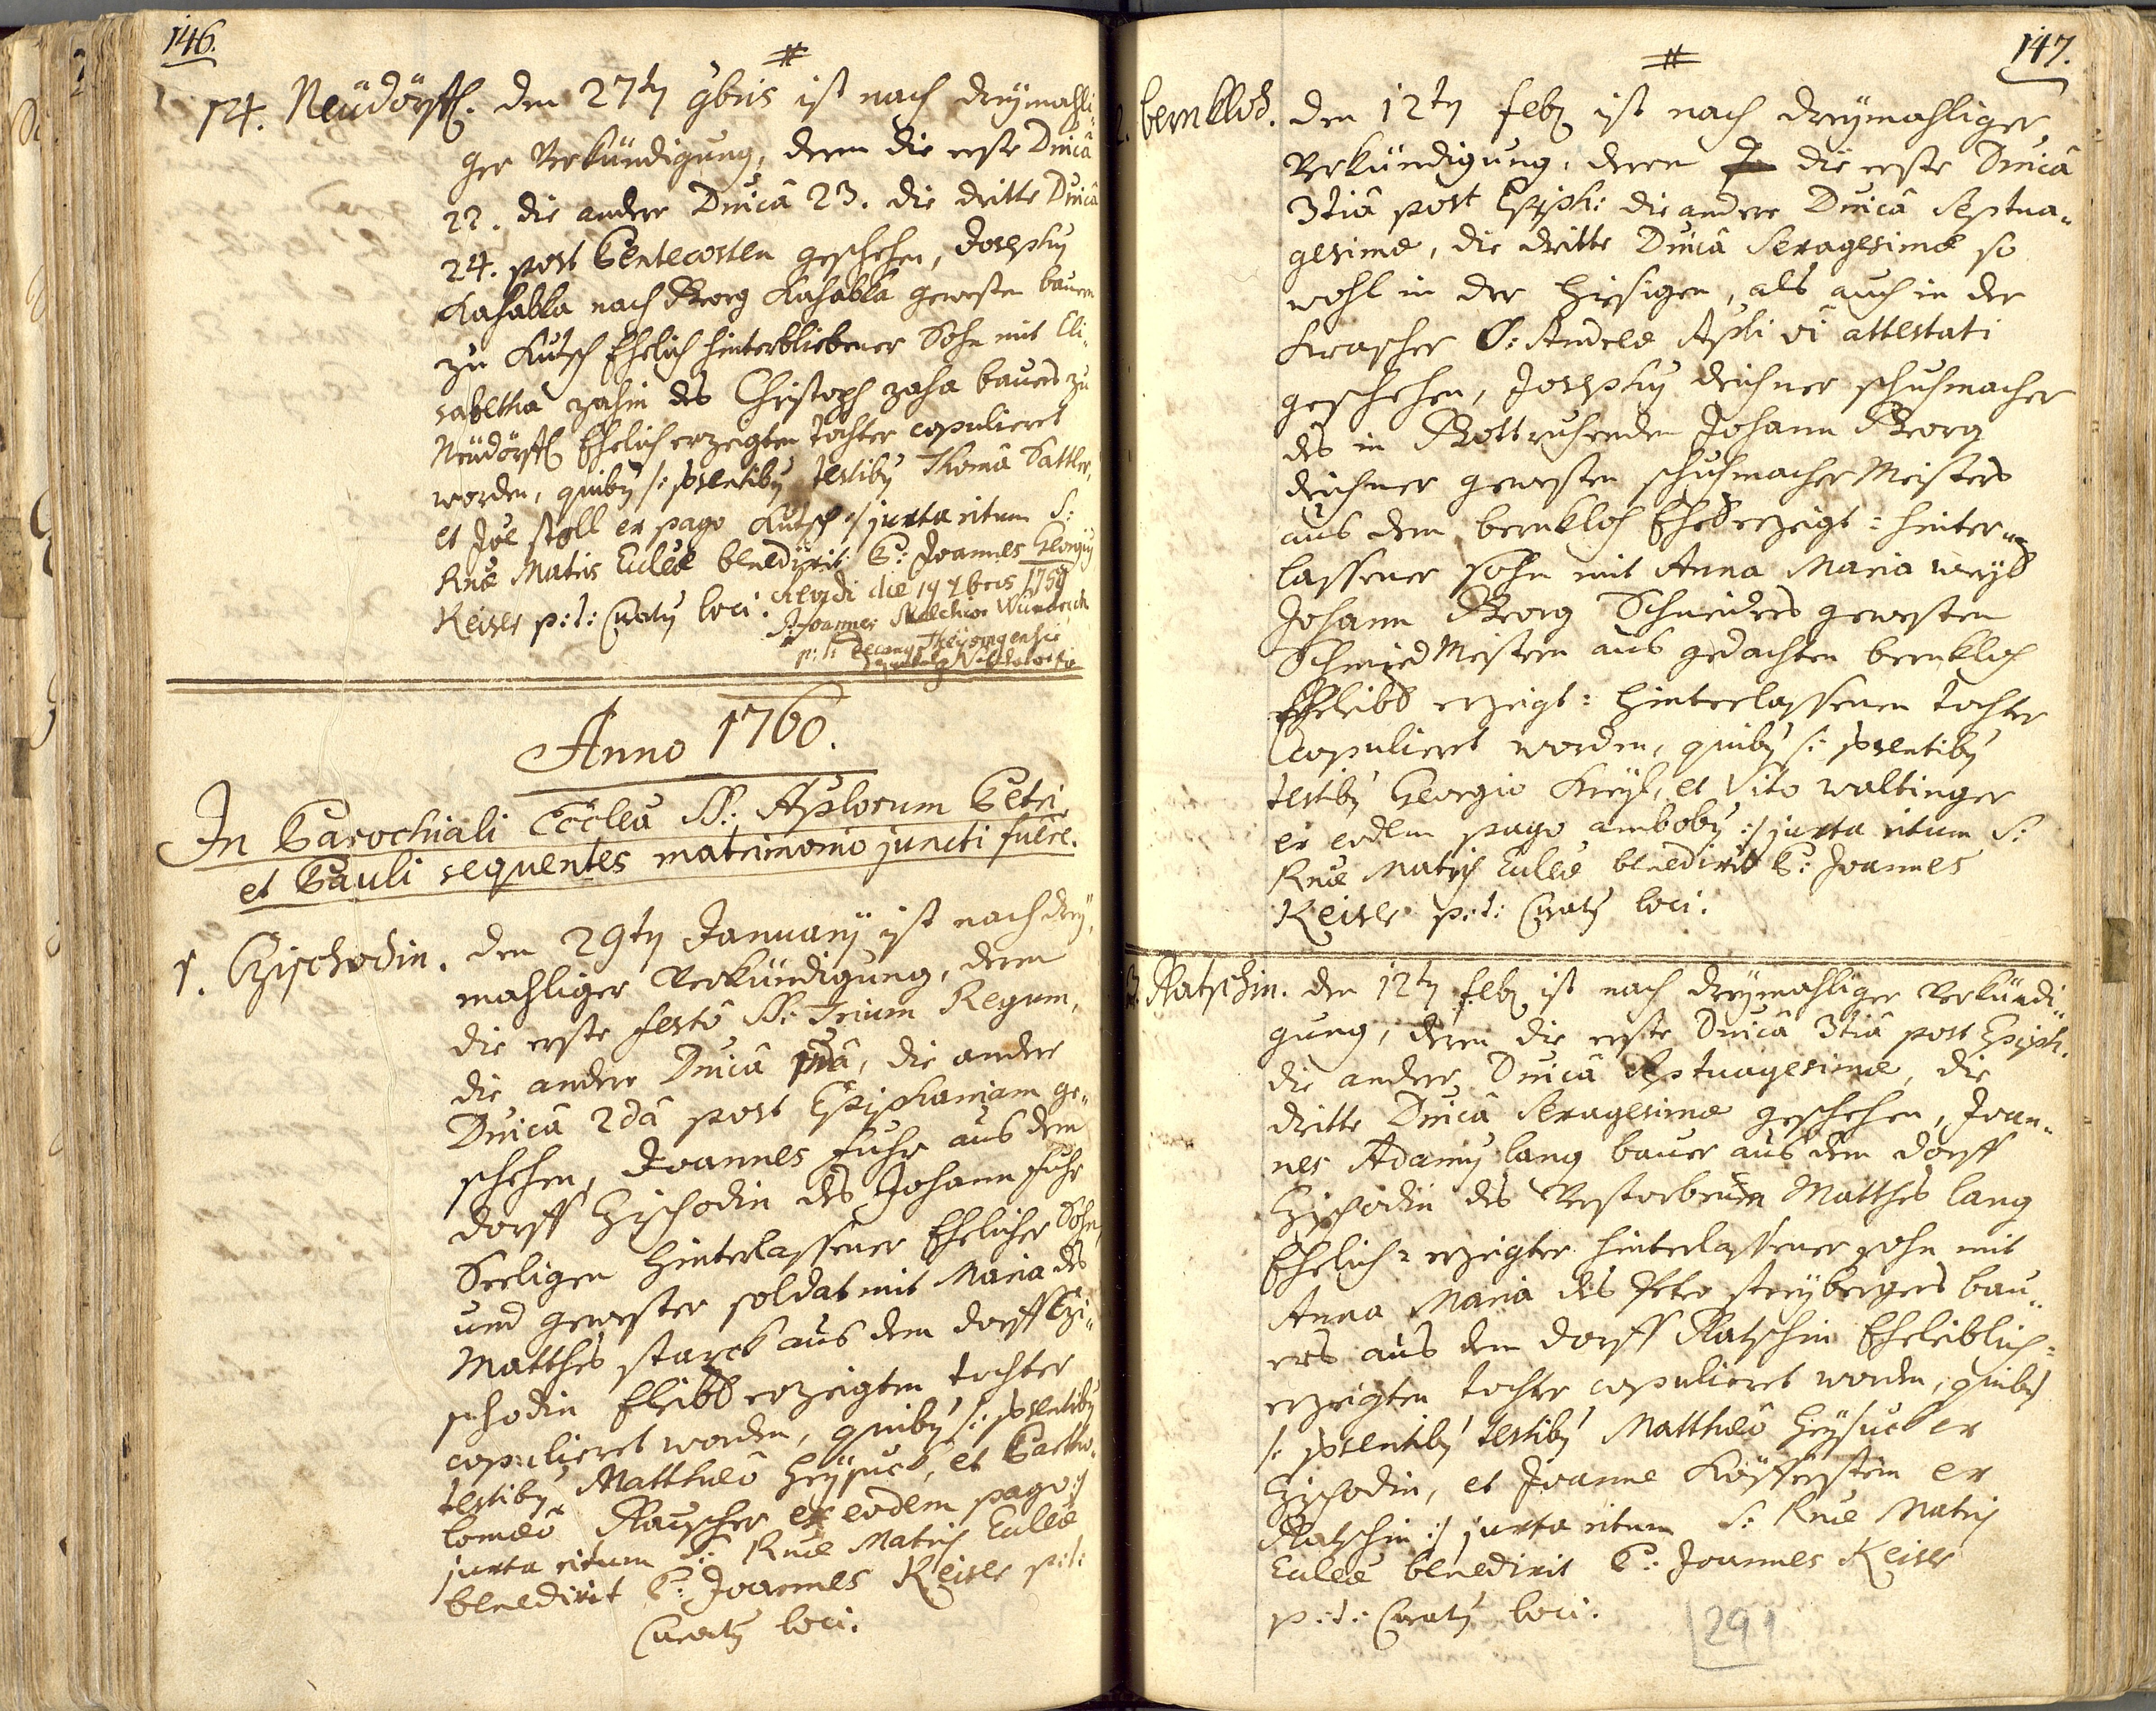 146.
#
14. Neüdörffl. den 27ten 9bris ist nach dreymahli-
ger Verkündigung, deren die erste Dnicâ
22. die andere Dnicâ 23. die dritte Dnicâ
24. post Pentecosten geschehen, Josephus
Kahabka nach Georg Kahabka gewesten bauern
zu Kutsch Ehelich hinterbliebener Sohn mit Eli-
sabetha zahin des Christoph zaha bauers zu
Neüdörffl Ehelich erzeigten tochter copulieret
worden, quibus /: psentibus testibus Thoma Sattler,
et Joe stoll ex pago Kutsch :/ juxta ritum S:
Rnæ Matris Eccleæ benedixit P: Joannes Georgius
Reiser p: t: Curatus loci.
Revidi die 19 xbris 1759
Joannes Melchior Wunderich
p: t: Decanus Theysingensis
Anno 1760.
In Parochiali Eccleâ SS: Aplorum Petri
et Pauli sequentes matrimonio juncti fuêre.
1. Czischodin. den 29ten January ist nach drey-
mahliger Verkündigung, deren
die erste festo SS: Trium Regum,
die andere Dnicâ 1mâ, die andere
Dnicâ 2dâ post Epiphaniam ge-
schehen, Joannes Fuhr aus dem
dorff Czischodin des Johann Fuhr
Seeligen hinterlassener Ehelicher Sohn,
und gewester soldat mit Maria des
Matthes starck aus dem dorff Czi-
schodin Eleibl erzeigten tochter
copulieret worden, quibus /: psentibus
testibus Matthæo Heysuck, et Bartho-
lomæo Rauscher ex eodem pago :/
juxta ritum S: Rnæ Matris Eccleæ
benedixit P: Joannes Reiser p: t:
Curatus loci.
147.
#
2. bernkloh. den 12ten feb ist nach dreymahliger
Verkündigung, deren die erste Dnicâ
3tiâ post Epiph: die andere Dnicâ Septua-
gesimæ, die dritte Dnicâ Sexagesimæ so
wohl in der hiesigen, als auch in der
Krascher S: Andreæ Apli vi attestati
geschehen, Josephus deichner schuhmacher
des in Gott ruhenden Johann Georg
deichner gewesten schuhmacher Meisters
aus dem bernkloh Ehel erzeigt = hinter-
lassener sohn mit Anna Maria weyl
Johann Georg Schneiders gewesten
Schmied Meistern aus gedachten bernkloh
Eheleibl erzeigt = hinterlassenen tochter
copulieret worden, quibus /: psentibus
testibus Georgio Kreysl, et Vito waltinger
ex eodem pago ambobus :/ juxta ritum S:
Rnæ Matris Eccleæ benedixit P: Joannes
Reiser p: t: Curatus loci.
3. Ratschin. den 12ten feb ist nach dreymahliger Verkündi-
gung, deren die erste Dnicâ 3tiâ post Epiph.
die andere Dnicâ Septuagesimæ, die
dritte Dnicâ Sexagesimæ geschehen, Joan-
nes Adamus lang bauer aus dem dorff
Czischodin des Verstorbenen Matthes lang
Ehelich = erzeigter hinterlassener sohn mit
Anna Maria des Peter streybergers bau-
ers aus dem dorff Ratschin Eheleiblich =
erzeigten tochter copulieret worden, quibus
/: psentibus testibus Matthæo Heysuck ex
Czischodin, et Joanne Köferstein ex
Ratschin :/ juxta ritum S: Rnæ Matris
Eccleæ benedixit P: Joannes Reiser
p: t: Curatus loci.
291